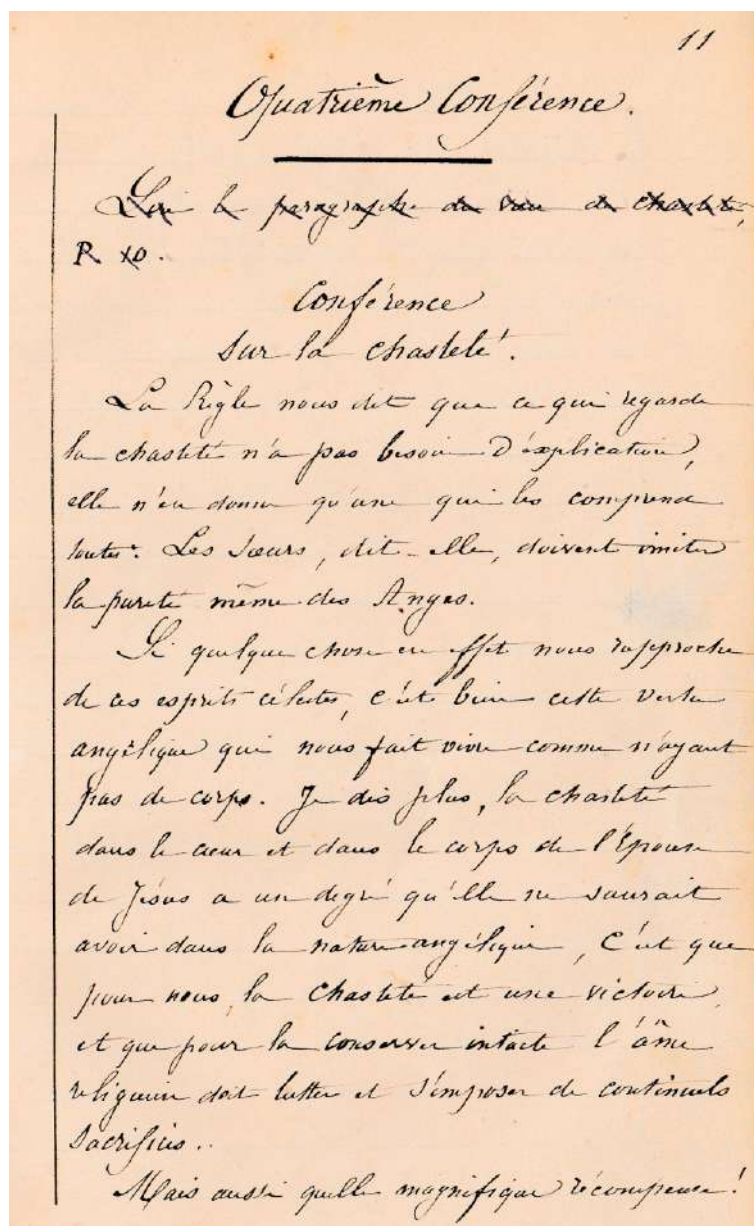 11
Quatrième Conférence.
Lire le paragraphe du vœu de chasteté,
P. 10.
Conférence
sur la chasteté.
La Règle nous dit que ce qui regarde
la chasteté n'a pas besoin d'éxplication,
elle n'en donne qu'une qui les comprend
toutes. Les Sœurs, dit-elle, doivent imiter
la pureté même des Anges.
Si quelque chose en effet nous rapproche
de ces esprits célestes, c'est bien cette vertu
angélique qui nous fait vivre comme n'ayant
pas de corps. Je dis plus, la chasteté
dans le cœur et dans le corps de l'Épouse
de Jésus a un degré qu'elle ne saurait
avoir dans la nature angélique, c'est que
pour nous, la chasteté est une victoire,
et que pour la conserver intacte l'âme
religieuse doit lutter et s'imposer de continuels
sacrifices..
Mais aussi quelle magnifique récompense!